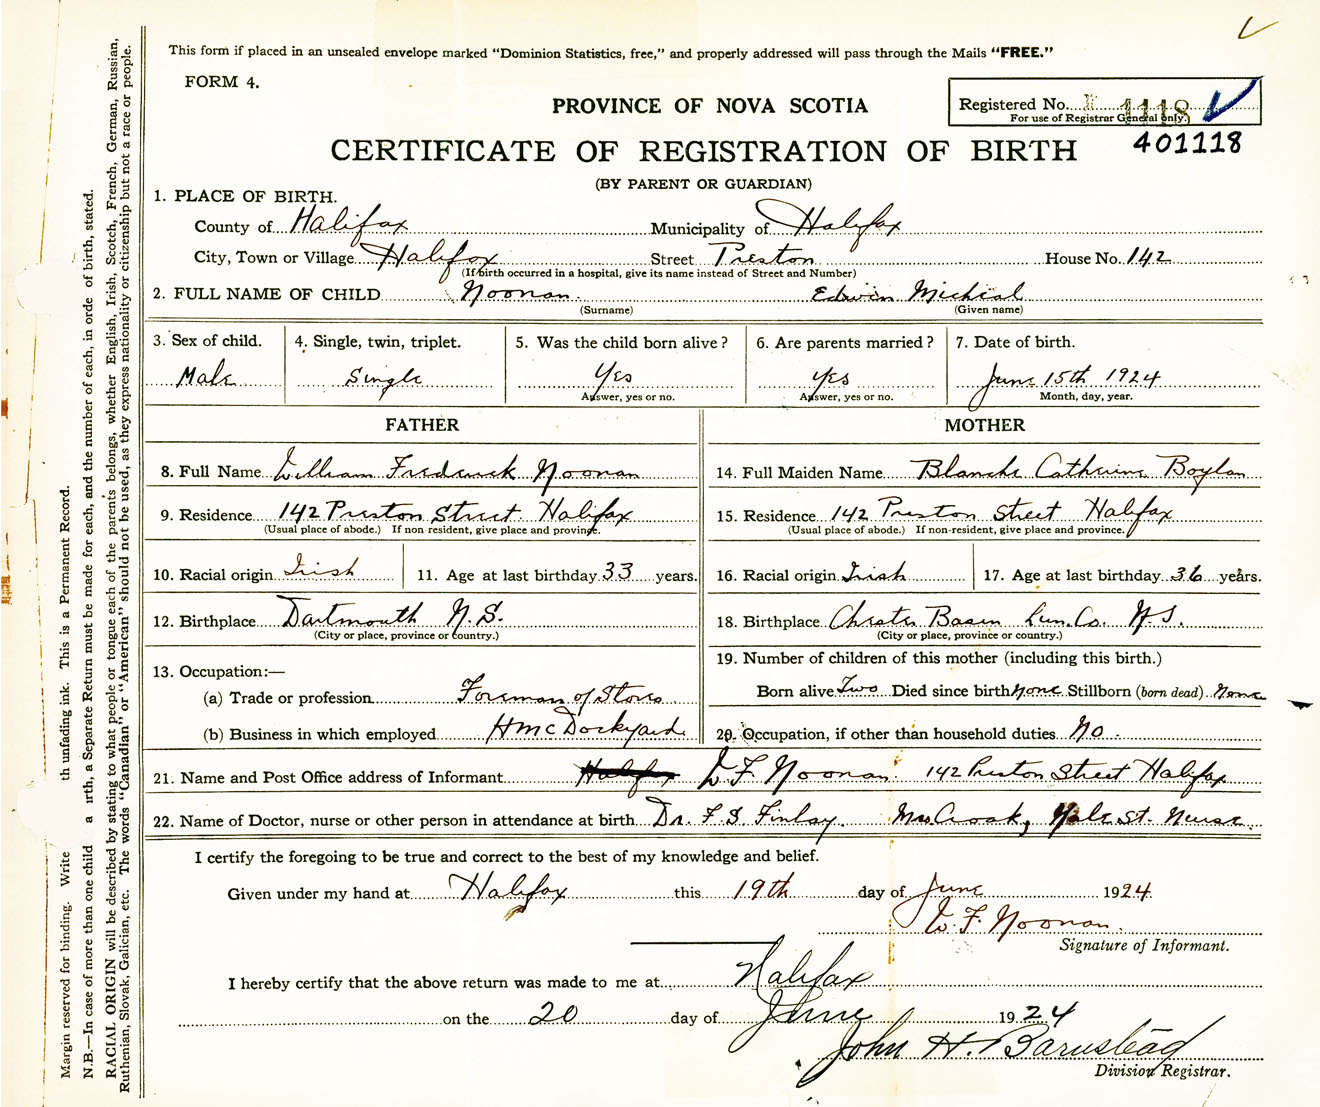 This form if placed in an unsealed envelope marked "Dominion Statistics, free," and properly addressed will pass through the Mails "FREE."
FORM 4.
PROVINCE OF NOVA SCOTIA
Registered No. 1118
For use of Registrar General only.
401118
CERTIFICATE OF REGISTRATION OF BIRTH
(BY PARENT OR GUARDIAN)
1. PLACE OF BIRTH.
County of Halifax Municipality of Halifax
City, Town or Village Halifax Street Preston House No. 142
(If birth occurred in a hospital, give its name instead of Street and Number)
2. FULL NAME OF CHILD Noonan. Edwin Micheal
(Surname) (Given name)
3. Sex of child. 4. Single, twin, triplet. 5. Was the child born alive? 6. Are parents married? 7. Date of birth.
Male Single Yes Yes June 15th 1924
Answer, yes or no. Answer, yes or no. Month, day, year.
FATHER MOTHER
8. Full Name William Frederick Noonan 14. Full Maiden Name Blanche Catherine Boylan
9. Residence 142 Preston Street. Halifax 15. Residence 142 Preston Street Halifax
(Usual place of abode.) If non resident, give place and province. (Usual place of abode.) If non-resident, give place and province.
10. Racial origin Irish 11. Age at last birthday 33 years. 16. Racial origin Irish 17. Age at last birthday 36 years.
12. Birthplace Dartmouth N.S. 18. Birthplace Chester Basin Lun. Co. N.S.
(City or place, province or country.) (City or place, province or country.)
13. Occupation:— 19. Number of children of this mother (including this birth.)
(a) Trade or profession Foreman of Stores Born alive Two Died since birth None Stillborn (born dead) None
(b) Business in which employed HMC Dockyard 20. Occupation, if other than household duties No.
21. Name and Post Office address of Informant Halifax W. F. Noonan. 142 Preston Street Halifax
22. Name of Doctor, nurse or other person in attendance at birth Dr. F. S. Finlay. Mrs. Croak, Yale St. Nurse.
I certify the foregoing to be true and correct to the best of my knowledge and belief.
Given under my hand at Halifax this 19th day of June 1924.
W. F. Noonan.
Signature of Informant.
I hereby certify that the above return was made to me at Halifax
on the 20 day of June 1924
John H. Barnstead
Division Registrar.
Margin reserved for binding. Write th unfading ink. This is a Permanent Record.
N.B.—In case of more than one child a rth, a Separate Return must be made for each, and the number of each, in orde of birth, stated.
RACIAL ORIGIN will be described by stating to what people or tongue each of the parents belongs, whether English, Irish, Scotch, French, German, Russian,
Ruthenian, Slovak, Galician, etc. The words "Canadian" or "American" should not be used, as they express nationality or citizenship but not a race or people.